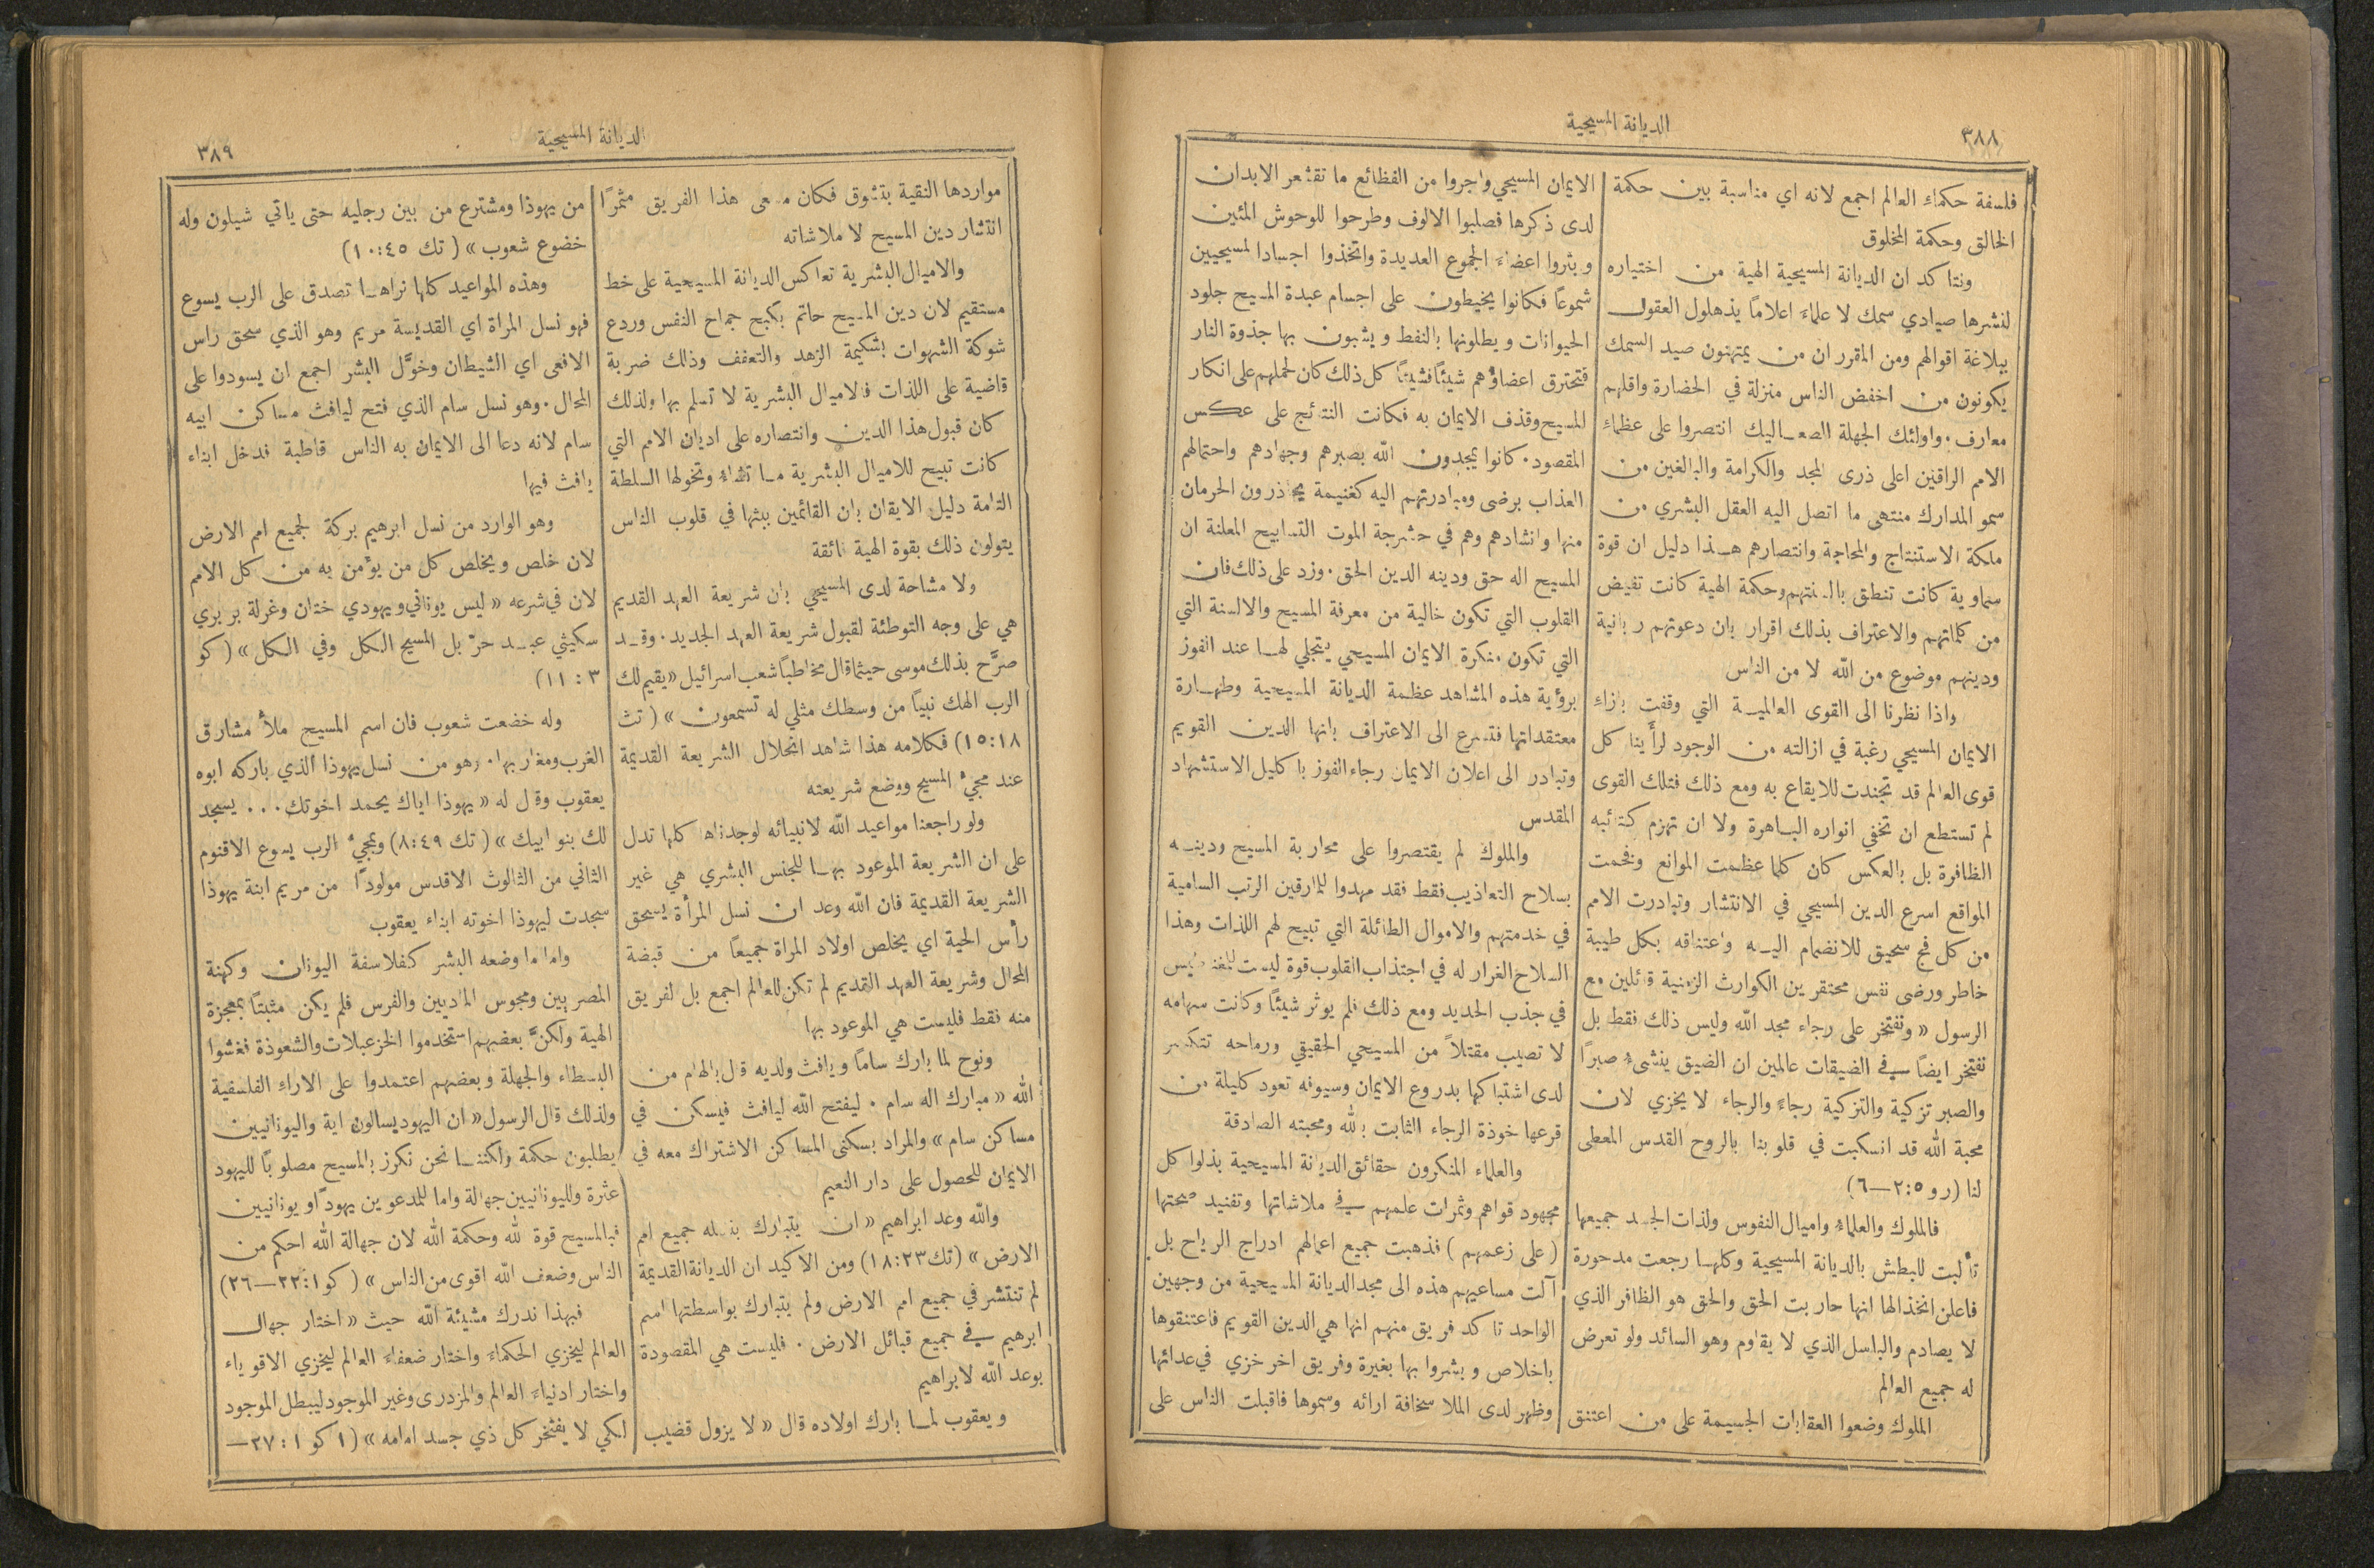 ٣٨٨
الديانة المسيحية
فلسفة حكماء العالم اجمع لانه اي مناسبة بين حكمة
الخالق وحكمة المخلوق
ونتاكد ان الديانة المسيحية الهية من اختياره
لنشرها صيادي سمك لا علماء اعلاماً يذهلول العقول
ببلاغة اقوالهم ومن المقرر ان من يمتهنون صيد السمك
يكونون من اخفض الناس منزلة في الحضارة واقلهم
معارف. واولئك الجهلة الصعاليك انتصروا على عظماء
الامم الراقين اعلى ذرى المجد والكرامة والبالغين من
سمو المدارك منتهى ما اتصل اليه العقل البشري من
ملكة الاستنتاج والمحاجة وانتصارهم هذا دليل ان قوة
سماوية كانت تنطق بالسنتهم وحكمة الهية كانت تفيض
من كلماتهم والاعتراف بذلك اقرار بان دعوتهم ربانية
ودينهم موضوع من الله لا من الناس
واذا نظرنا الى القوى العالمية التي وقفت بازاء
الايمان المسيحي رغبة في ازالته من الوجود لرأينا كل
قوى العالم قد تجندت للايقاع به ومع ذلك فتلك القوى
لم تستطع ان تخفي انواره الباهرة ولا ان تهزم كتائبه
الظافرة بل بالعكس كان كلما عظمت الموانع وفخمت
المواقع اسرع الدين المسيحي في الانتشار وتبادرت الامم
من كل فج سحيق للانضمام اليه واعتناقه بكل طيبة
خاطر ورضى نفس محتقرين الكوارث الزمنية قائلين مع
الرسول « ونفتخر على رجاء مجد الله وليس ذلك فقط بل
نفتخر ايضاً في الضيقات عالمين ان الضيق ينشىء صبراً
والصبر تزكية والتزكية رجاءً والرجاء لا يخزي لان
محبة الله قد انسكبت في قلوبنا بالروح القدس المعطى
لنا (رو ٥:٢—٦)
فالملوك والعلماء واميال النفوس ولذات الجسد جميعها
تألبت للبطش بالديانة المسيحية وكلها رجعت مدحورة
فاعلن انخذالها انها حاربت الحق والحق هو الظافر الذي
لا يصادم والباسل الذي لا يقاوم وهو السائد ولو تعرض
له جميع العالم
الملوك وضعوا العقابات الجسيمة على من اعتنق
الايمان المسيحي واجروا من الفظائع ما تقشعر الابدان
لدى ذكرها فصلبوا الالوف وطرحوا للوحوش المئين
وبثروا اعضاء الجموع العديدة واتخذوا اجساد المسيحيين
شموعاً فكانوا يخيطون على اجسام عبدة المسيح جلود
الحيوانات ويطلونها بالنفط ويشبون بها جذوة النار
فتحترق اعضاؤهم شيئاً فشيئاً كل ذلك كان لحملهم على انكار
المسيح وقذف الايمان به فكانت النتائج على عكس
المقصود. كانوا يمجدون الله بصبرهم وجهادهم واحتمالهم
العذاب برضى ومبادرتهم اليه كغنيمة يحاذرون الحرمان
منها وانشادهم وهم في حشرجة الموت التسابيح المعلنة ان
المسيح اله حق ودينه الدين الحق. وزد على ذلك فان
القلوب التي تكون خالية من معرفة المسيح والالسنة التي
التي تكون منكرة الايمان المسيحي يتجلي لها عند الفوز
برؤية هذه المشاهد عظمة الديانة المسيحية وطهارة
معتقداتها فتسرع الى الاعتراف بانها الدين القويم
وتبادر الى اعلان الايمان رجاء الفوز باكليل الاستشهاد
المقدس
والملوك لم يقتصروا على محاربة المسيح ودينه
بسلاح التعاذيب فقط فقد مهدوا للمارقين الرتب السامية
في خدمتهم والاموال الطائلة التي تبيح لهم اللذات وهذا
السلاح الغرار له في اجتذاب القلوب قوة ليست للمغنطيس
في جذب الحديد ومع ذلك فلم يوثر شيئاً وكانت سهامه
لا تصيب مقتلاً من المسيحي الحقيقي ورماحه تتكسر
لدى اشتباكها بدروع الايمان وسيوفه تعود كليلة من
قرعها خوذة الرجاء الثابت بالله ومحبته الصادقة
والعلماء المنكرون حقائق الديانة المسيحية بذلوا كل
مجهود قواهم وثمرات علمهم في ملاشاتها وتفنيد صحتها
( على زعمهم ) فذهبت جميع اعمالهم ادراج الرياح بل
آلت مساعيهم هذه الى مجد الديانة المسيحية من وجهين
الواحد تاكد فريق منهم انها هي الدين القويم فاعتنقوها
باخلاص وبشروا بها بغيرة وفريق اخر خزي في عدائها
وظهر لدى الملا سخافة ارائه وسموها فاقبلت الناس على
الديانة المسيحية
٣٨٩
مواردها النقية بتشوق فكان مسعى هذا الفريق مثمراً
انتشار دين المسيح لا ملاشاته
والاميال البشرية تعاكس الديانة المسيحية على خط
مستقيم لان دين المسيح حاتم بكبح جماح النفس وردع
شوكة الشهوات بشكيمة الزهد والتعفف وذلك ضربة
قاضية على اللذات فالاميال البشرية لا تسلم بها ولذلك
كان قبول هذا الدين وانتصاره على اديان الامم التي
كانت تبيح للاميال البشرية ما تشاء وتخولها السلطة
التامة دليل الايقان بان القائمين ببثها في قلوب الناس
يتولون ذلك بقوة الهية فائقة
ولا مشاحة لدى المسيحي بان شريعة العهد القديم
هي على وجه التوطئة لقبول شريعة العهد الجديد. وقد
صرَّح بذلك موسى حيثما قال مخاطباً شعب اسرائيل «يقيم لك
الرب الهك نبياً من وسطك مثلي له تسمعون » ( تث
١٥:١٨) فكلامه هذا شاهد انحلال الشريعة القديمة
عند مجيء المسيح ووضع شريعته
ولو راجعنا مواعيد الله لانبيائه لوجدناها كلها تدل
على ان الشريعة الموعود بها للجنس البشري هي غير
الشريعة القديمة فان الله وعد ان نسل المرأة يسحق
رأس الحية اي يخلص اولاد المراة جميعاً من قبضة
المحال وشريعة العهد القديم لم تكن للعالم اجمع بل لفريق
منه فقط فليست هي الموعود بها
ونوح لما بارك ساماً ويافث ولديه قال بالهام من
الله « مبارك اله سام . ليفتح الله ليافث فيسكن في
مساكن سام » والمراد بسكنى المساكن الاشتراك معه في
الايمان للحصول على دار النعيم
والله وعد ابراهيم « ان يتبارك بنسله جميع امم
الارض » (تك ١٨:٢٣) ومن الاكيد ان الديانة القديمة
لم تنتشر في جميع امم الارض ولم يتبارك بواسطتها اسم
ابرهيم في جميع قبائل الارض . فليست هي المقصودة
بوعد الله لابراهيم
ويعقوب لما بارك اولاده قال « لا يزول قضيب
من يهوذا ومشترع من بين رجليه حتى ياتي شيلون وله
خضوع شعوب » ( تك ١٠:٤٥)
وهذه المواعيد كلها نراها تصدق على الرب يسوع
فهو نسل المراة اي القديسة مريم وهو الذي سحق راس
الافعى اي الشيطان وخوَّل البشر اجمع ان يسودوا على
المحال. وهو نسل سام الذي فتح ليافث مساكن ابيه
سام لانه دعا الى الايمان به الناس قاطبة فدخل ابناء
يافث فيها
وهو الوارد من نسل ابرهيم بركة لجميع امم الارض
لان خلص ويخلص كل من يؤمن به من كل الامم
لان في شرعه « ليس يوناني ويهودي ختان وغرلة بربري
سكيثي عبد حرّ بل المسيح الكل وفي الكل » ( كو
٣ : ١١)
وله خضعت شعوب فان اسم المسيح ملأ مشارق
الغرب ومغاربها. وهو من نسل يهوذا الذي باركه ابوه
يعقوب وقال له « يهوذا اياك يحمد اخوتك... يسجد
لك بنو ابيك » ( تك ٨:٤٩) وبمجيء الرب يسوع الاقنوم
الثاني من الثالوث الاقدس مولوداً من مريم ابنة يهوذا
سجدت ليهوذا اخوته ابناء يعقوب
واما ما وضعه البشر كفلاسفة اليونان وكهنة
المصريين ومجوس الماديين والفرس فلم يكن مثبتاً بمعجزة
الهية ولكنَّ بعضهم استخدموا الخزعبلات والشعوذة فغشوا
البسطاء والجهلة وبعضهم اعتمدوا على الاراء الفلسفية
ولذلك قال الرسول « ان اليهود يسالون اية واليونانيين
يطلبون حكمة ولكننا نحن نكرز بالمسيح مصلوباً لليهود
عثرة ولليونانيين جهالة واما للمدعوين يهوداً او يونانيين
فبالمسيح قوة لله وحكمة الله لان جهالة الله احكم من
الناس وضعف الله اقوى من الناس » ( كو ١:٢٢—٢٦)
فبهذا ندرك مشيئة الله حيث « اختار جهال
العالم ليخزي الحكماء واختار ضعفاء العالم ليخزي الاقوياء
واختار ادنياء العالم والمزدرى وغير الموجود ليبطل الموجود
لكي لا يفتخر كل ذي جسد امامه » (١ كو ١ : ٢٧—